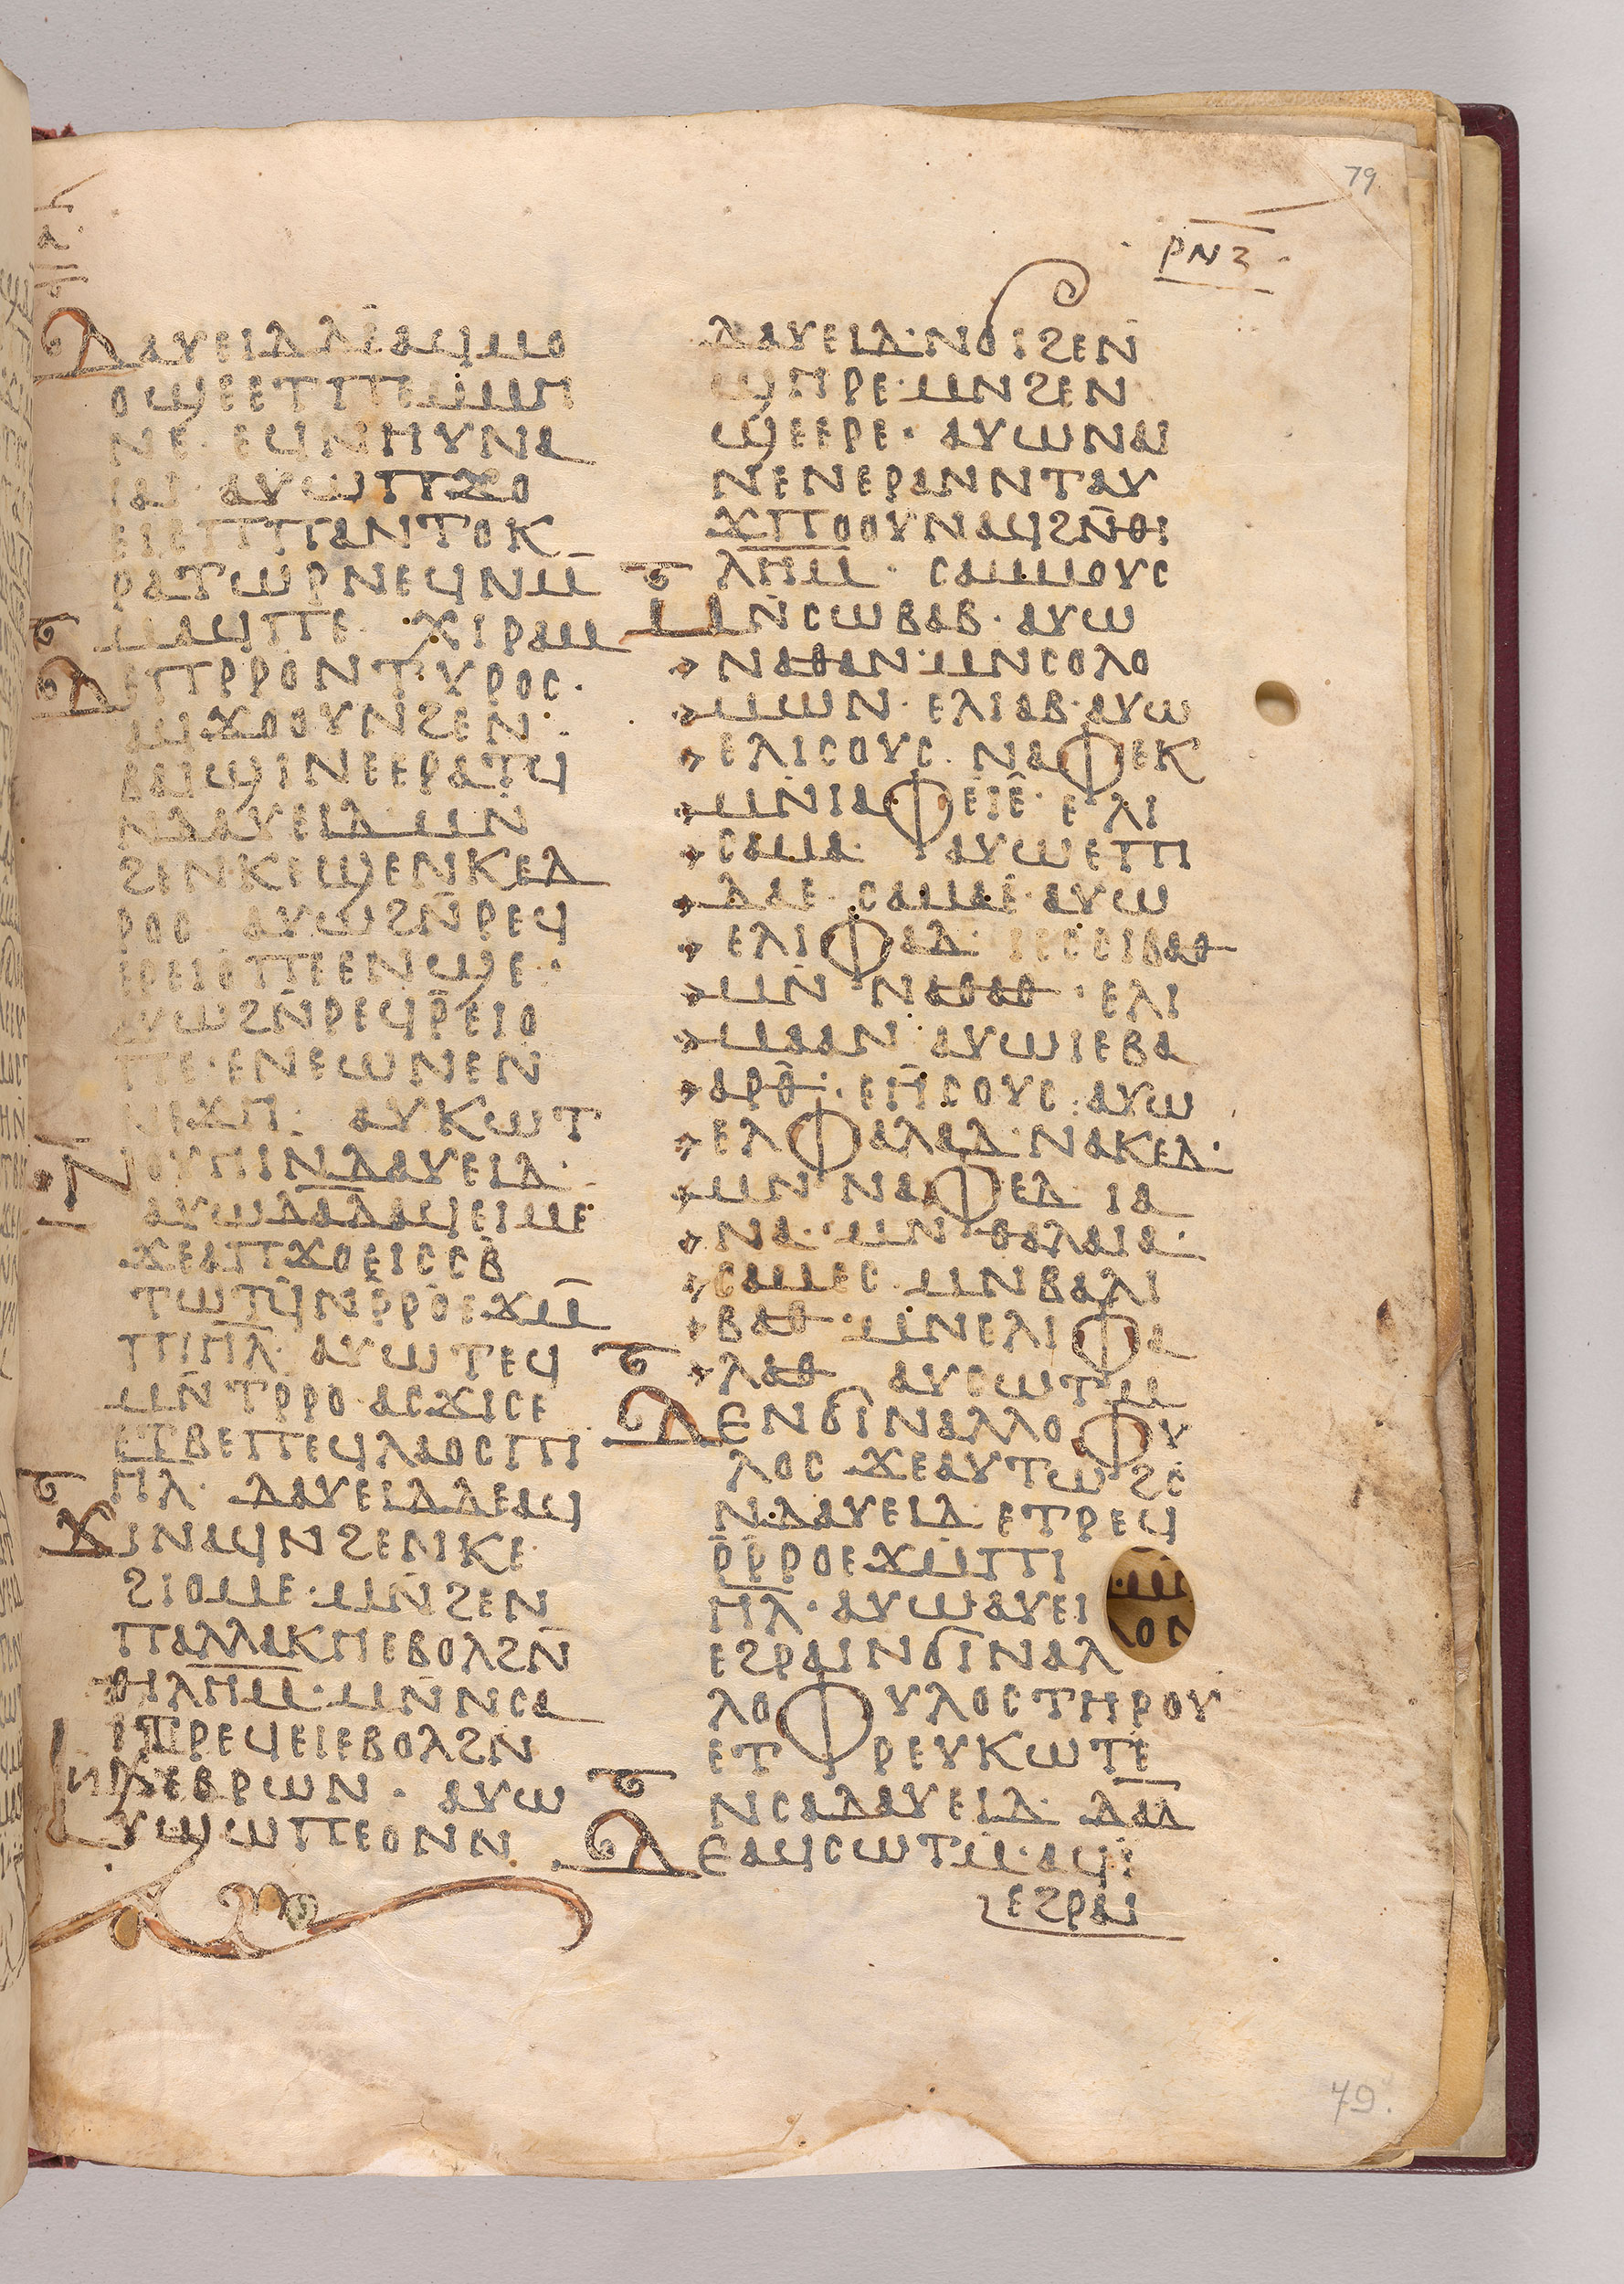 79
ⲣⲛⲍ
ⲇⲁⲩⲉⲓⲇ ⲇⲉ ⲁϥⲙⲟ
ⲟϣⲉ ⲉⲧⲡⲉ ⲙⲙⲏ
ⲛⲉ· ⲉϥⲛⲏⲩ ⲛⲁ
ⲓⲁⲓ· ⲁⲩⲱ ⲡϫⲟ
ⲉⲓⲥ ⲡⲡⲁⲛⲧⲟⲕ
ⲣⲁⲧⲱⲣ ⲛⲉϥⲛⲙ̄
ⲙⲁϥⲡⲉ· ⲭⲓⲣⲁⲙ
ⲇⲉ ⲡⲣⲣⲟ ⲛⲧⲩⲣⲟⲥ·
ⲁϥϫⲟⲟⲩ ⲛϩⲉⲛ
ⲃⲁⲓϣⲓⲛⲉ ⲉⲣⲁⲧϥ
ⲛⲇⲁⲩⲉⲓⲇ· ⲙⲛ̄
ϩⲉⲛⲕⲉϣⲉ ⲛⲕⲉⲇ
ⲣⲟⲥ· ⲁⲩⲱ ϩⲛ̄ⲣⲉϥ
ⲉⲣⲉⲓⲟⲡⲉ ⲛϣⲉ·
ⲁⲩⲱ ϩⲛ̄ⲣⲉϥⲣ̄ⲉⲓⲟ
ⲡⲉ· ⲉⲛⲉⲱⲛⲉ ⲛ̄
ⲙⲉϫⲡ· ⲁⲩⲕⲱⲧ
ⲛⲟⲩⲏⲓ ⲛⲇⲁⲩⲉⲓⲇ·
ⲁⲩⲱ ⲇⲁ̄ⲇ ⲁϥⲉⲓⲙⲉ
ϫⲉ ⲁⲡϫⲟⲉⲓⲥ ⲥⲃ̄
ⲧⲱⲧϥ̄ ⲛⲣ̄ⲣⲟ ⲉϫⲙ̄
ⲡⲓⲏ̄ⲗ· ⲁⲩⲱ ⲧⲉϥ
ⲙⲛ̄ⲧⲣⲣⲟ ⲁⲥϫⲓⲥⲉ
ⲉⲧⲃⲉ ⲡⲉϥⲗⲁⲟⲥ ⲡⲓ
ⲏⲗ· ⲇⲁⲩⲉⲓⲇ ⲇⲉ ⲁϥ
ϫⲓ ⲛⲁϥ ⲛϩⲉⲛⲕⲉ
ϩⲓⲟⲙⲉ· ⲙⲛ̄ϩⲉⲛ
ⲡⲁⲗⲗⲁⲕⲏ ⲉⲃⲟⲗϩⲛ̄
ⲑⲓⲗⲏⲙ· ⲙⲛ̄ⲛⲥⲁ
ⲧⲣⲉϥⲉⲓ ⲉⲃⲟⲗϩⲛ
ⲭⲉⲃⲣⲱⲛ· ⲁⲩⲱ
ⲁⲩϣⲱⲡⲉ ⲟⲛ ⲛ
ⲇⲁⲩⲉⲓⲇ· ⲛϭⲓ ϩⲉⲛ̄
ϣⲏⲣⲉ· ⲙⲛϩⲉⲛ
ϣⲉⲉⲣⲉ· ⲁⲩⲱ ⲛⲁⲓ
ⲛⲉ ⲛⲉⲣⲁⲛ ⲛⲧⲁⲩ
ϫⲡⲟⲟⲩ ⲛⲁϥ ϩⲛ̄ⲑⲓ
ⲗⲏⲙ· ⲥⲁⲙⲙⲟⲩⲥ
ⲙⲛ̄ ⲥⲱⲃⲁⲃ· ⲁⲩⲱ
ⲛⲁⲑⲁⲛ· ⲙⲛ ⲥⲟⲗⲟ
ⲙⲱⲛ· ⲉⲗⲓⲁⲃ· ⲁⲩⲱ
ⲉⲗⲓⲥⲟⲩⲥ· ⲛⲁⲫⲉⲕ
ⲙⲛ̄ ⲓⲁⲫⲉⲓⲉ· ⲉⲗⲓ
ⲥⲁⲙⲁ· ⲁⲩⲱ ⲉⲡⲓ
ⲇⲁⲉ· ⲥⲁⲙⲁⲉ· ⲁⲩⲱ
ⲉⲗⲓⲫⲁⲇ· ⲓⲉⲥⲥⲉⲓⲃⲁⲑ
ⲙⲛ̄ ⲛⲁⲑⲁⲑ· ⲉⲗⲓ
ⲙⲁⲁⲛ· ⲁⲩⲱ ⲓⲉⲃⲁ
ⲁⲣⲑ· ⲉⲏⲥⲟⲩⲥ· ⲁⲩⲱ
ⲉⲗⲫⲁⲗⲁⲇ· ⲛⲁⲕⲉⲇ·
ⲙⲛ ⲛⲁⲫⲉⲇ ⲓⲁ
ⲛⲁ· ⲙⲛ ⲑⲁⲗⲁⲓⲁ·
ⲥⲁⲙⲉⲥ ⲙⲛ ⲃⲁⲗⲓ
ⲃⲁⲑ· ⲙⲛ ⲉⲗⲓⲫⲁ
ⲗⲁⲑ ⲁⲩⲥⲱⲧⲙ
ⲇⲉ ⲛϭⲓ ⲛⲁⲗⲗⲟⲫⲩ
ⲗⲟⲥ ϫⲉ ⲁⲩⲧⲱϩⲥ
ⲛⲇⲁⲩⲉⲓⲇ ⲉⲧⲣⲉϥ
ⲣ̄ⲣ̄ⲣⲟ ⲉϫⲙ̄ⲡⲓ
ⲏ̄ⲗ· ⲁⲩⲱ ⲁⲩⲉⲓ
ⲉϩⲣⲁⲓ ⲛϭⲓ ⲛⲁⲗ
ⲗⲟⲫⲩⲗⲟⲥ ⲧⲏⲣⲟⲩ
ⲉⲧⲣⲉⲩⲕⲱⲧⲉ
ⲛⲥⲁ ⲇⲁⲩⲉⲓⲇ· ⲇⲁ̄ⲇ
ⲇⲉ ⲁϥⲥⲱⲧⲙ̄· ⲁϥⲓ̈
ⲉϩⲣⲁⲓ
79.